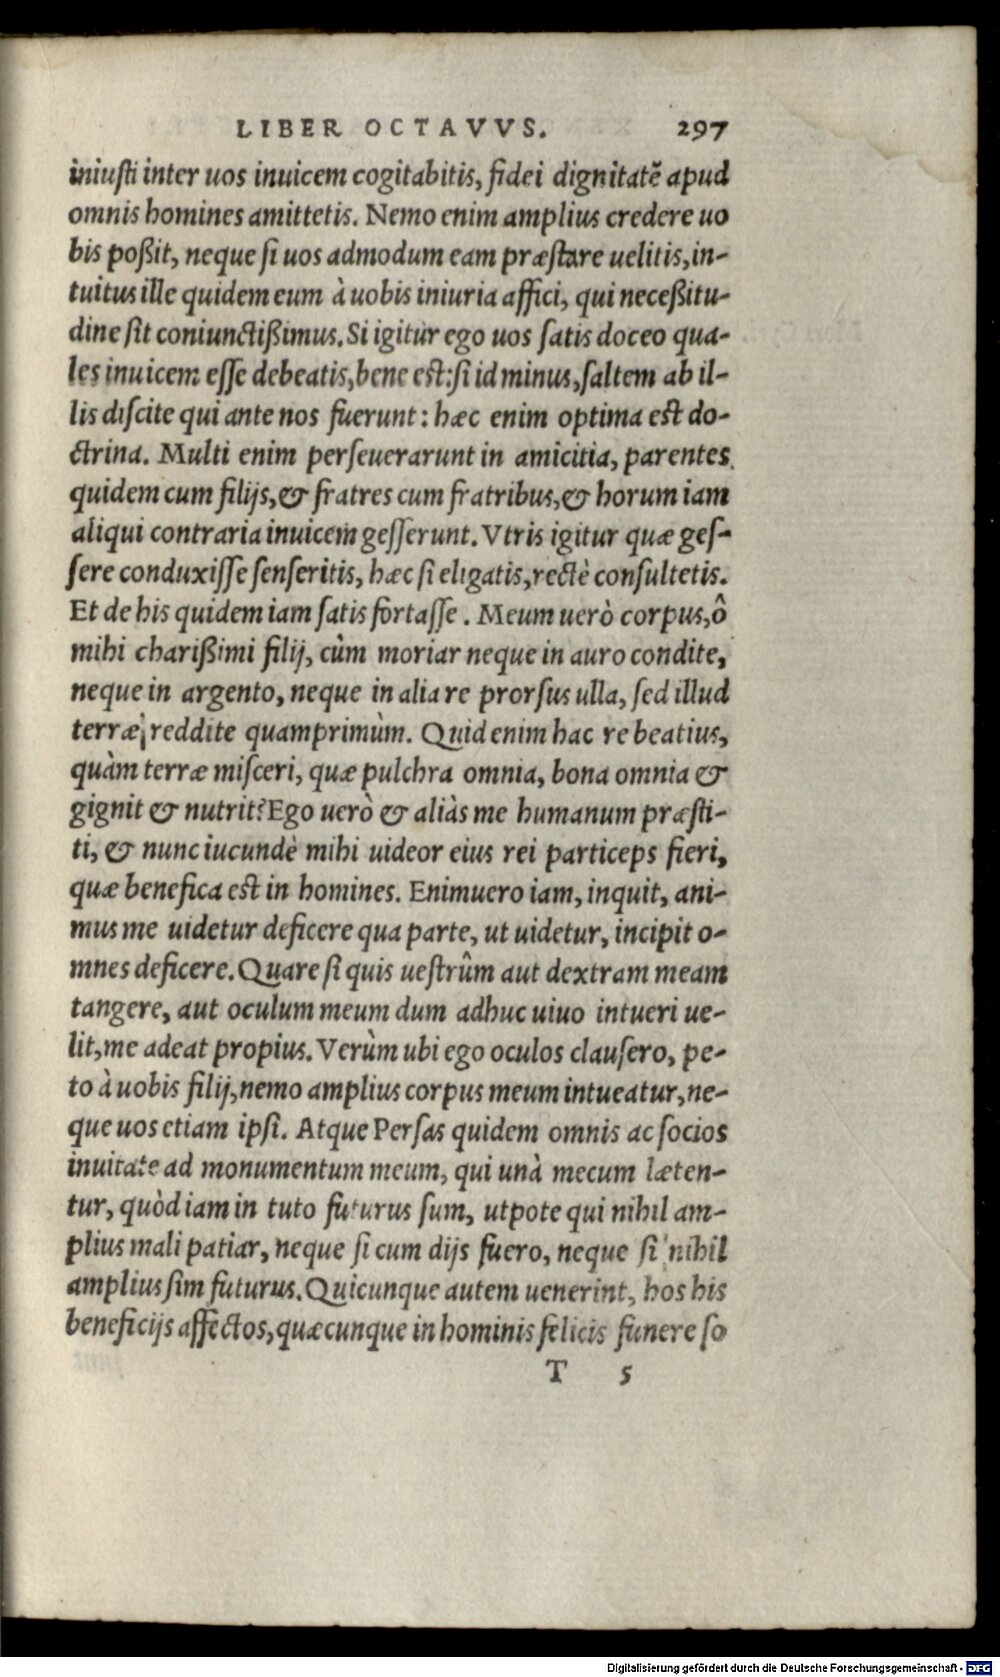 LIBER OCTAVVS. 297
iniusti inter uos inuicem cogitabitis, fidei dignitatẽ apud
omnis homines amittetis. Nemo enim amplius credere uo
bis poßit, neque si uos admodum eam præstare uelitis, in-
tuitus ille quidem eum à uobis iniuria affici, qui neceßitu-
dine sit coniunctißimus. Si igitur ego uos satis doceo qua-
les inuicem esse debeatis, bene est: si id minus, saltem ab il-
lis discite qui ante nos fuerunt: hæc enim optima est do-
ctrina. Multi enim perseuerarunt in amicitia, parentes
quidem cum filijs, & fratres cum fratribus, & horum iam
aliqui contraria inuicem gesserunt. Vtris igitur quæ ges-
sere conduxisse senseritis, hæc si eligatis, rectè consultetis.
Et de his quidem iam satis fortasse. Meum uerò corpus, ô
mihi charißimi filij, cùm moriar neque in auro condite,
neque in argento, neque in alia re prorsus ulla, sed illud
terræ reddite quamprimùm. Quid enim hac re beatius,
quàm terræ misceri, quæ pulchra omnia, bona omnia &
gignit & nutrit? Ego uerò & aliàs me humanum præsti-
ti, & nunc iucundè mihi uideor eius rei particeps fieri,
quæ benefica est in homines. Enimuero iam, inquit, ani-
mus me uidetur deficere qua parte, ut uidetur, incipit o-
mnes deficere. Quare si quis uestrûm aut dextram meam
tangere, aut oculum meum dum adhuc uiuo intueri ue-
lit, me adeat propius. Verùm ubi ego oculos clausero, pe-
to à uobis filij, nemo amplius corpus meum intueatur, ne-
que uos etiam ipsi. Atque Persas quidem omnis ac socios
inuitate ad monumentum meum, qui unà mecum læten-
tur, quòd iam in tuto futurus sum, utpote qui nihil am-
plius mali patiar, neque si cum dijs fuero, neque si nihil
amplius sim futurus. Quicunque autem uenerint, hos his
beneficijs affectos, quæcunque in hominis felicis funere so
T 5
Digitalisierung gefördert durch die Deutsche Forschungsgemeinschaft - DFG